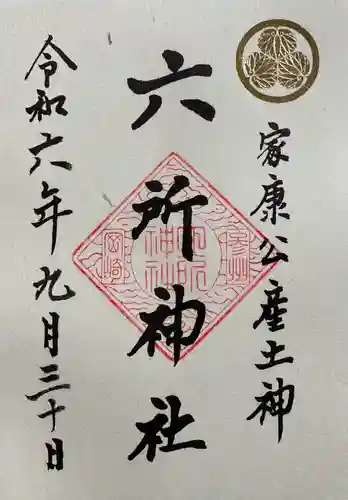 家康公産土神
六所神社
令和六年九月三十日
参州
六所
神社
岡崎